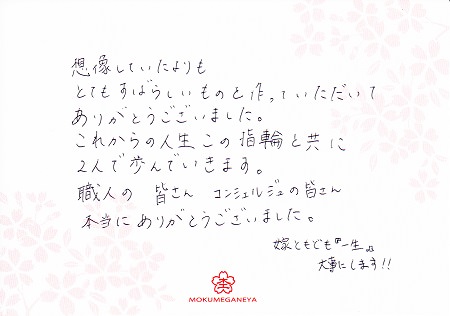 想像していたよりも
とてもすばらしいものを作っていただいて
ありがとうございました。
これからの人生この指輪と共に
2人で歩んでいきます。
職人の 皆さん コンシェルジュの皆さん
本当にありがとうございました。
嫁ともども『一生』
大事にします!!
杢
MOKUMEGANEYA